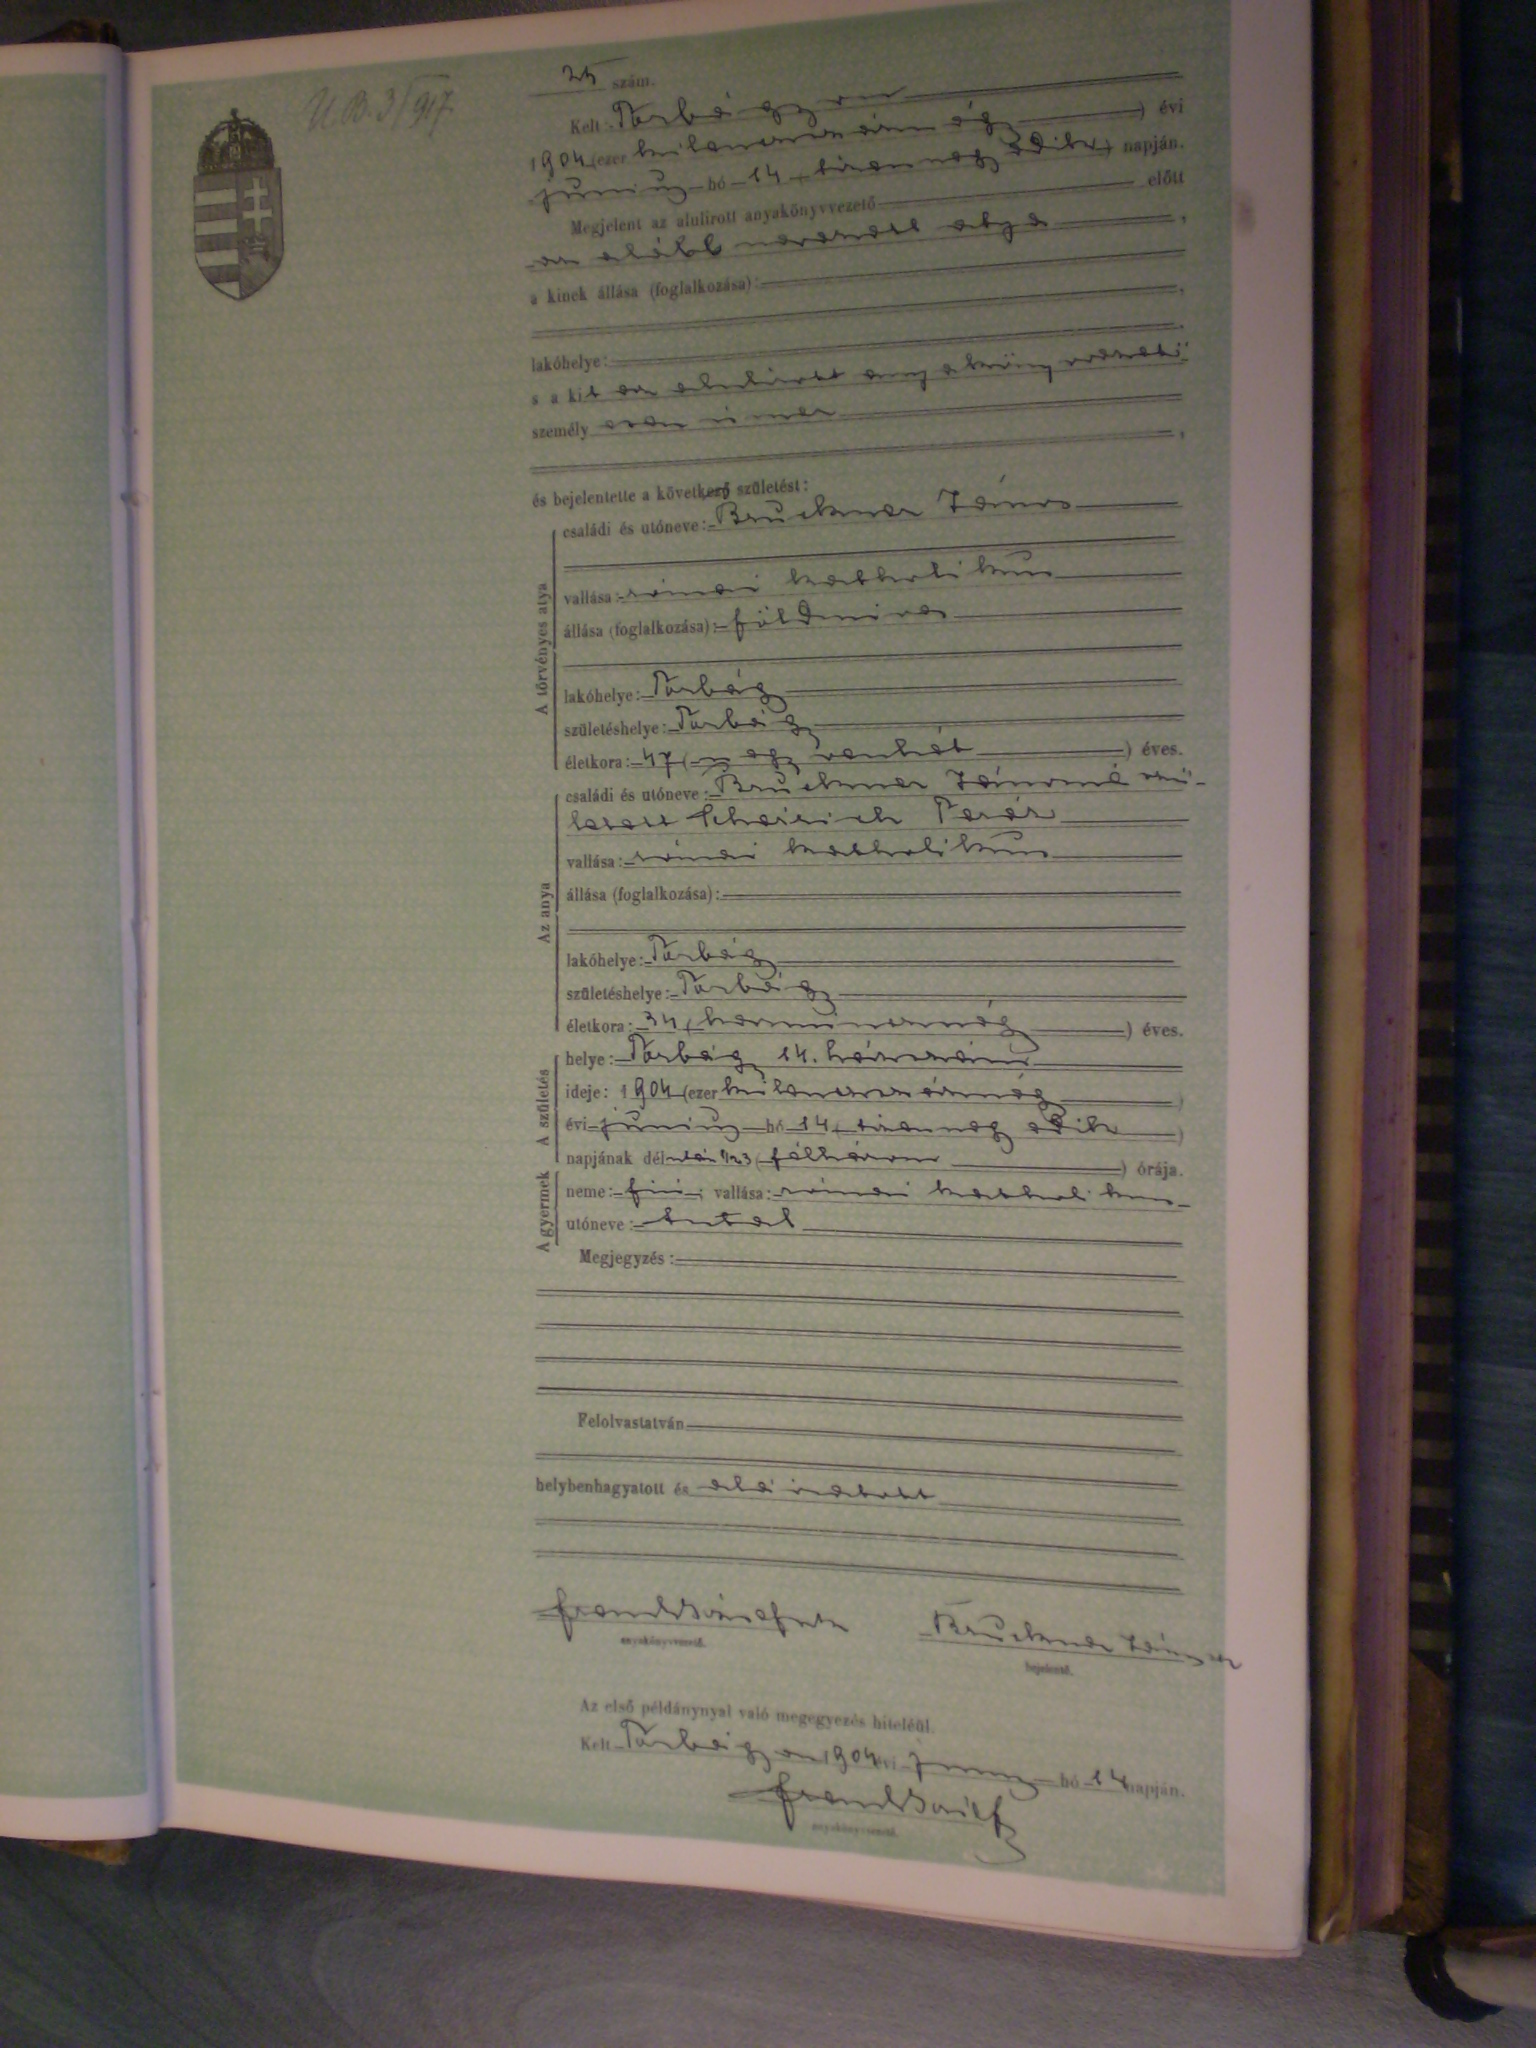 U. B. 3/917.
25 szám.
Kelt Torbágyon évi
1904 (ezer kilencszáznégy
junius hó 14 (tizennegyedik) napján.
Megjelent az alulirott anyakönyvvezető előtt
az alább nevezett atya,
a kinek állása (foglalkozása):
lakóhelye:
s a kit az alulirott anyakönyvvezető
személyesen ismer,
és bejelentette a következő születést:
A törvényes atya
családi és utóneve: Bruckner János
vallása: római katholikus
állása (foglalkozása): földmives
lakóhelye: Torbágy
születéshelye: Torbágy
életkora: 47 (negyvenhét) éves.
Az anya
családi és utóneve: Bruckner Jánosné szü-
letett Teréz
vallása: római katholikus
állása (foglalkozása):
lakóhelye: Torbágy
születéshelye: Torbágy
életkora: 34 (harmincnégy) éves.
A születés
helye: Torbágy 14. házszám
ideje: 1904 (ezer kilencszáznégy)
évi junius hó 14 (tizennegyedik)
napjának délután 1/2 3 (félhárom) órája.
A gyermek
neme: fiú; vallása: római katholikus
utóneve: Antal
Megjegyzés:
Felolvastatván
helybenhagyatott és aláiratott
anyakönyvvezető.
Bruckner János
bejelentő.
Az első példánynyal való megegyezés hiteléül.
Kelt Torbágyon 1904 évi junius hó 14 napján.
anyakönyvvezető.